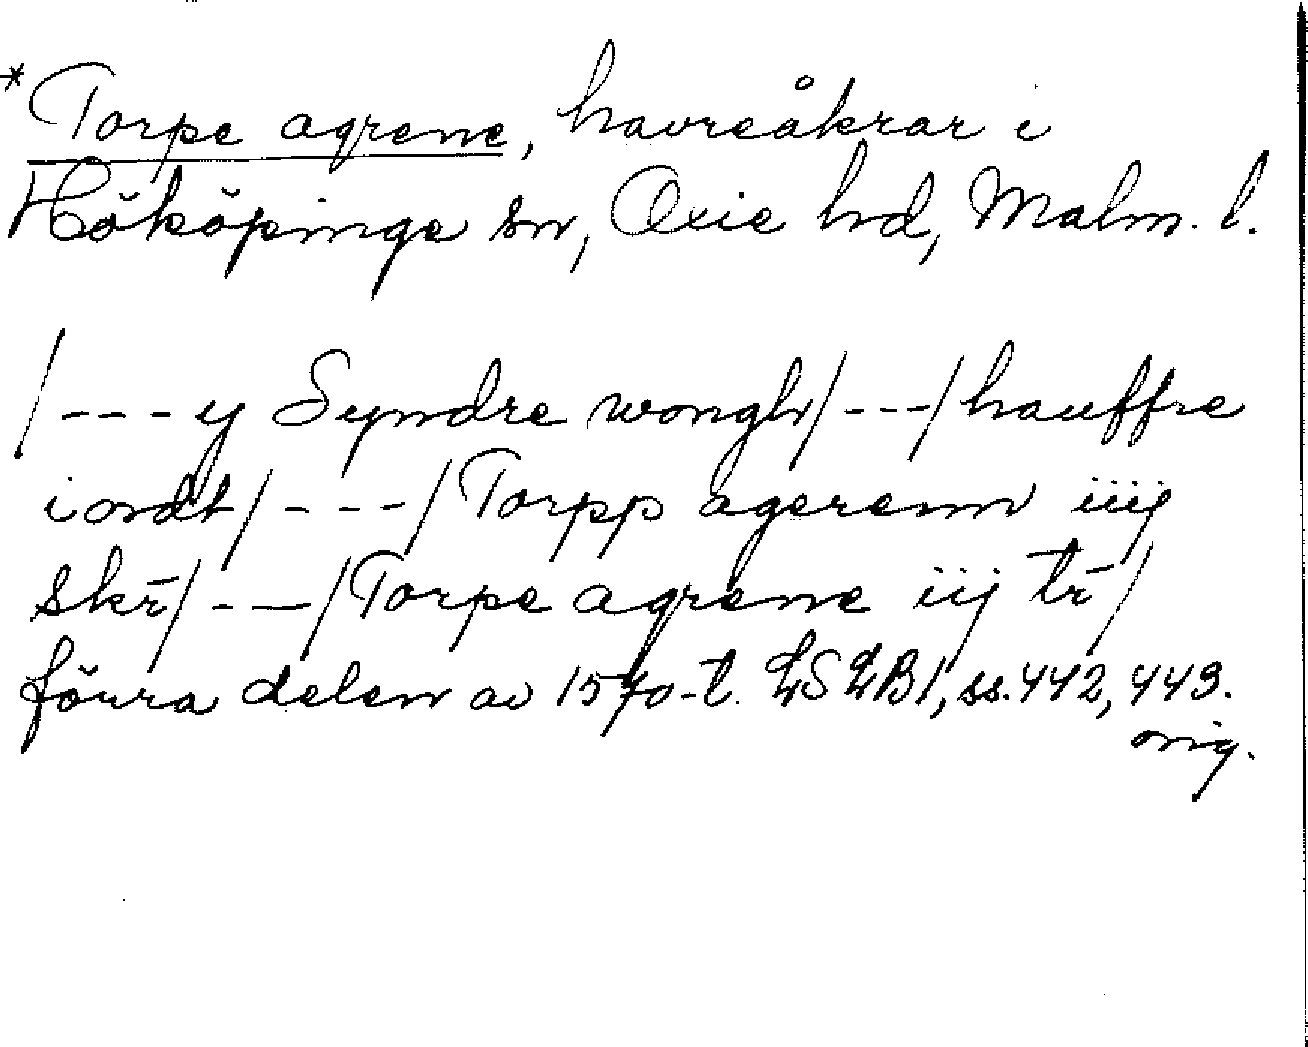 *Torpe agrene, havreåkrar i
Hököpinge sn, Oxie hd, Malm. l.
/---y Syndre wongh/---/hauffre
iordt/---/Torpp agerenn iiij
skr̄/---/Torpe agrene iij tr̄/
förra delen av 1570-t. LSLB1, ss. 442, 443.
orig.